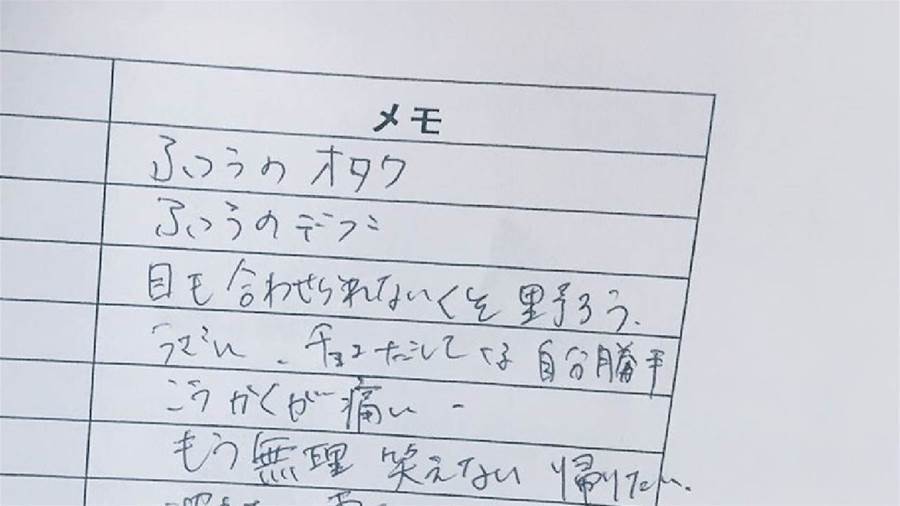 メモ
ふつうのオタク
ふつうのデブ
目も合わせられないくそ野ろう.
うでに 自分勝手
こうかくが痛い -
もう無理 笑えない 帰りたい.